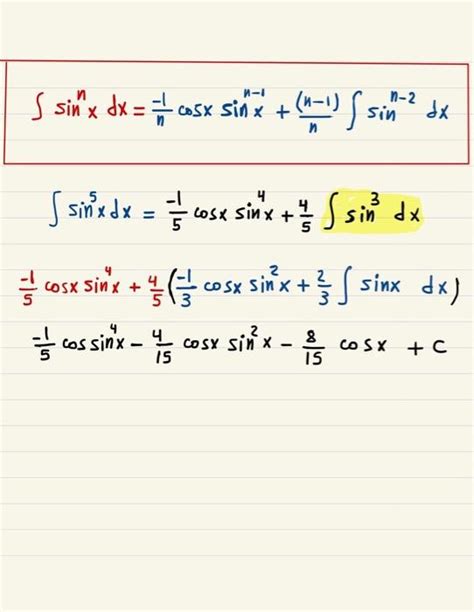 ∫ sinⁿx dx = -1/n cosx sinⁿ⁻¹x + (n-1)/n ∫ sinⁿ⁻² dx
∫ sin⁵x dx = -1/5 cosx sin⁴x + 4/5 ∫ sin³ dx
-1/5 cosx sin⁴x + 4/5 (-1/3 cosx sin²x + 2/3 ∫ sinx dx)
-1/5 cos sin⁴x - 4/15 cosx sin²x - 8/15 cosx + C